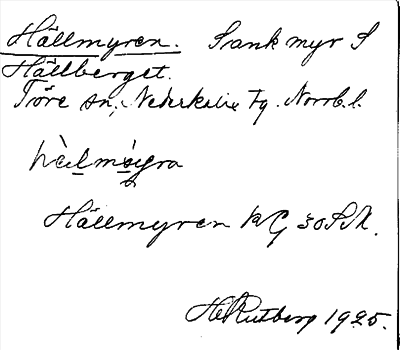 Hällmyren. Sank myr S
Hällberget.
Töre sn, Nederkalix Fg. Norrb. l.
Hällmyren KG 30
H Rutberg 1925.